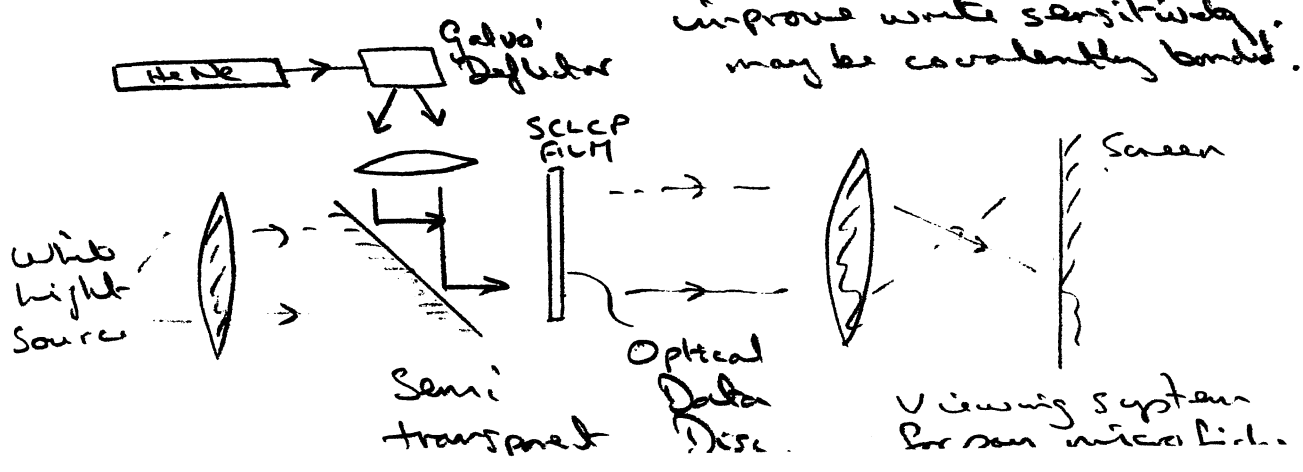 improve write sensitivity.
may be covalently bonded.
Galvo'
Deflector
HeNe
SCLCP
FILM
Screen
White
Light
Source
Semi
transparent
Optical
Data
Disc.
Viewing system
for say microfich.